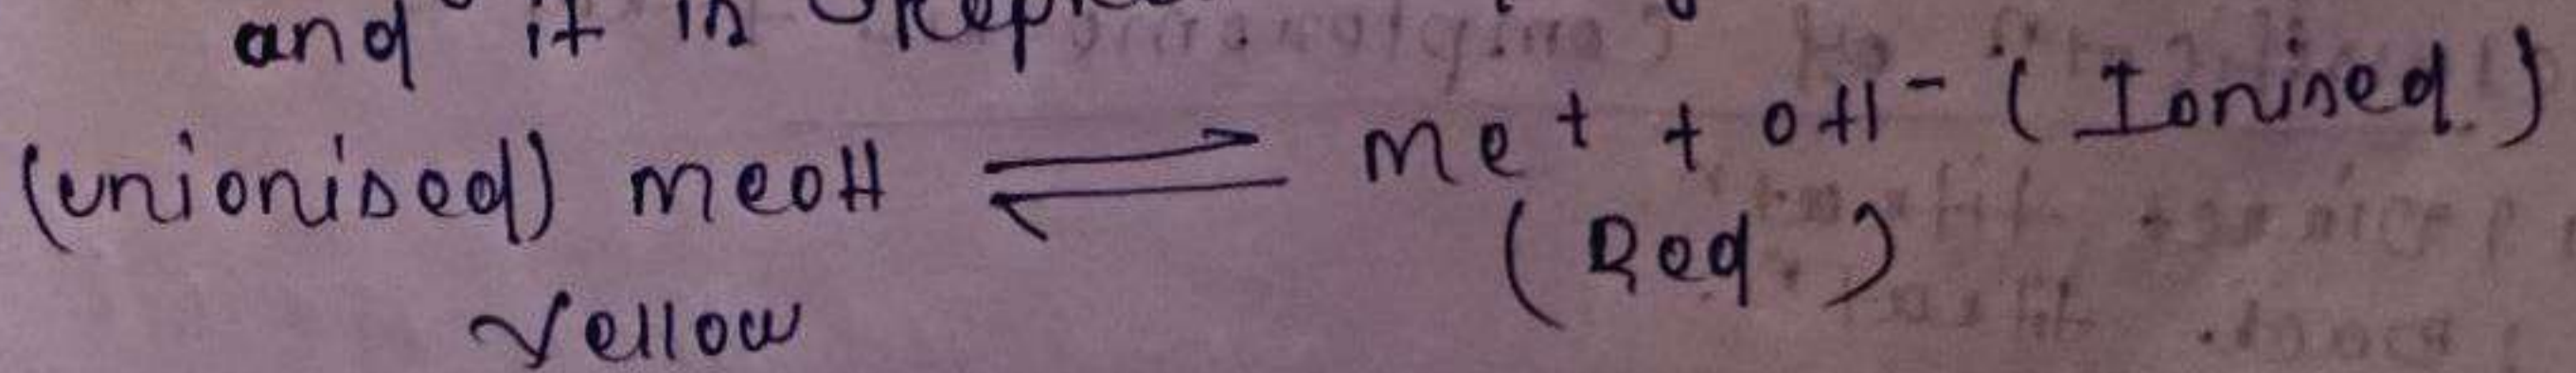 and it is
(unionised) meoH ⇌ me+ + oH- (Ionised)
(Red)
Yellow